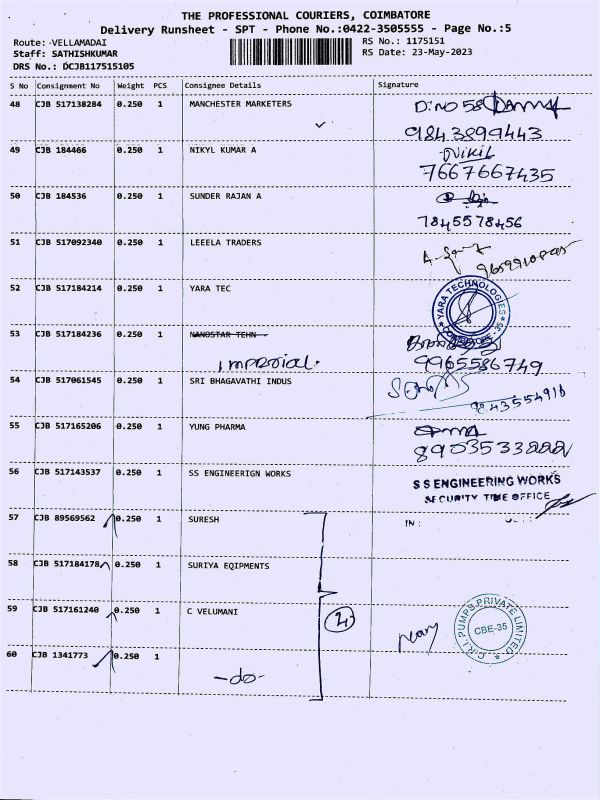 THE PROFESSIONAL COURIERS, COIMBATORE
Delivery Runsheet - SPT - Phone No.:0422-3505555 - Page No.:5
Route: -VELLAMADAI
Staff: SATHISHKUMAR
DRS No.: DCJB117515105
RS No.: 1175151
RS Date: 23-May-2023
S No Consignment No Weight PCS Consignee Details Signature
48 CJB 517138284 0.250 1 MANCHESTER MARKETERS D.NO 58
9843899443
49 CJB 184466 0.250 1 NIKYL KUMAR A Nikil
7667667435
50 CJB 184536 0.250 1 SUNDER RAJAN A
7845578456
51 CJB 517092340 0.250 1 LEEELA TRADERS
52 CJB 517184214 0.250 1 YARA TEC
YARA TECHNOLOGIES
53 CJB 517184236 0.250 1 NANOSTAR TEHN
Imperial.
9965586749
54 CJB 517061545 0.250 1 SRI BHAGAVATHI INDUS
9843554916
55 CJB 517165206 0.250 1 YUNG PHARMA
56 CJB 517143537 0.250 1 SS ENGINEERIGN WORKS
S S ENGINEERING WORKS
SECURITY TIME OFFICE
57 CJB 89569562 0.250 1 SURESH IN :
58 CJB 517184178 0.250 1 SURIYA EQIPMENTS
59 CJB 517161240 0.250 1 C VELUMANI
C.R.I PUMPS PRIVATE LIMITED
CBE-35
60 CJB 1341773 0.250 1
-do-